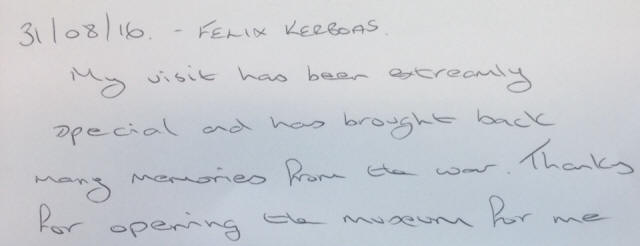 31/08/16. - FELIX KERBOAS.
My visit has been streamly
special and has brought back
many memories from the war. Thanks
for opening the museum for me